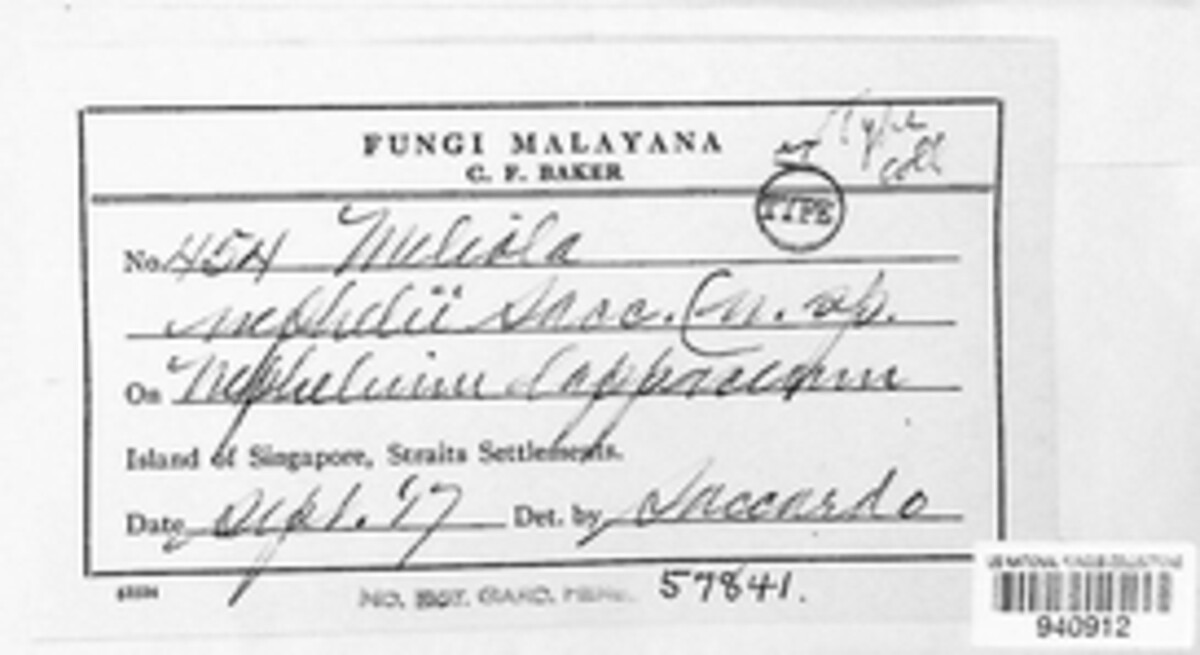 FUNGI MALAYANA
C. F. BAKER
Type coll
TYPE
No. 454 Meliola
nephelii Sacc. (n. sp.
On Nephelium lappaceum
Island of Singapore, Straits Settlements.
Date Sept. '17 Det. by Saccardo
MO. BOT. GARD. HERB. 57841.
US NATIONAL FUNGUS COLLECTIONS
940912